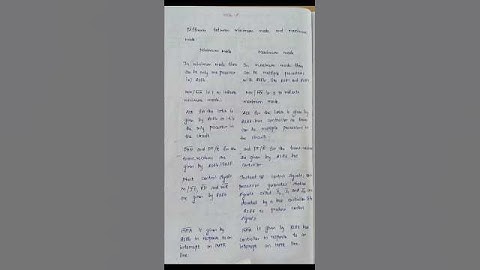 Difference between minimum mode and maximum
mode
Minimum mode
In minimum mode there
can be only one processor
i.e. 8086
MN/MX is 1 to indicate
minimum mode.
ALE for the latch is
given by 8086 as it is
the only processor in
the circuit
DEN and DT/R for the
trans-receivers are
given by 8086 itself
Direct control signals
M/IO, RD and WR
are given by 8086
INTA is given by
8086 in response to an
interrupt on INTR
line
Maximum mode
In maximum mode there
can be multiple processors
with 8086, like 8087 and 8089
MN/MX is 0 to indicate
maximum mode.
ALE for the latch is given by
8288 bus controller as there
can be multiple processors in
the circuit.
DEN and DT/R for the trans-receivers
are given by 8288 bus
controller
Instead of control signals, each
processor generates status
signals called S2, S1 and S0
decoded by a bus controller like
8288 to produce control
signals
INTA is given by 8288 bus
controller in response to an
interrupt on INTR line